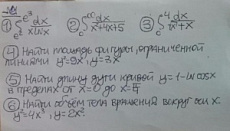 ① ∫ₑ^{e³} dx/(x ln x) ② ∫₀^{∞} dx/(x²+4x+5) ③ ∫₀⁴ dx/(x²+x)
④ Найти площадь фигуры, ограниченной
линиями y²=9x, y=3x
⑤ Найти длину дуги кривой y=1-ln cosx
в пределах от x=0 до x=π/6
⑥ Найти объём тела вращения вокруг оси x:
y²=4x, y=2x²